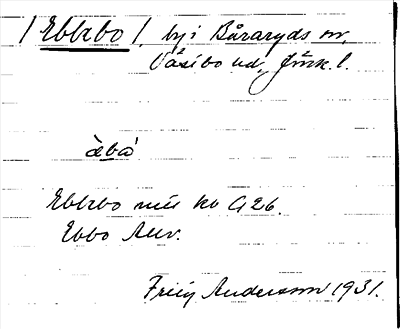 /Ebbebo/. by i Båraryds sn,
Västbo hd, Jönk. l.
æ̀bá
Ebbebo nil kv G 26.
Ebbo Auv.
Frey Andersson 1931.